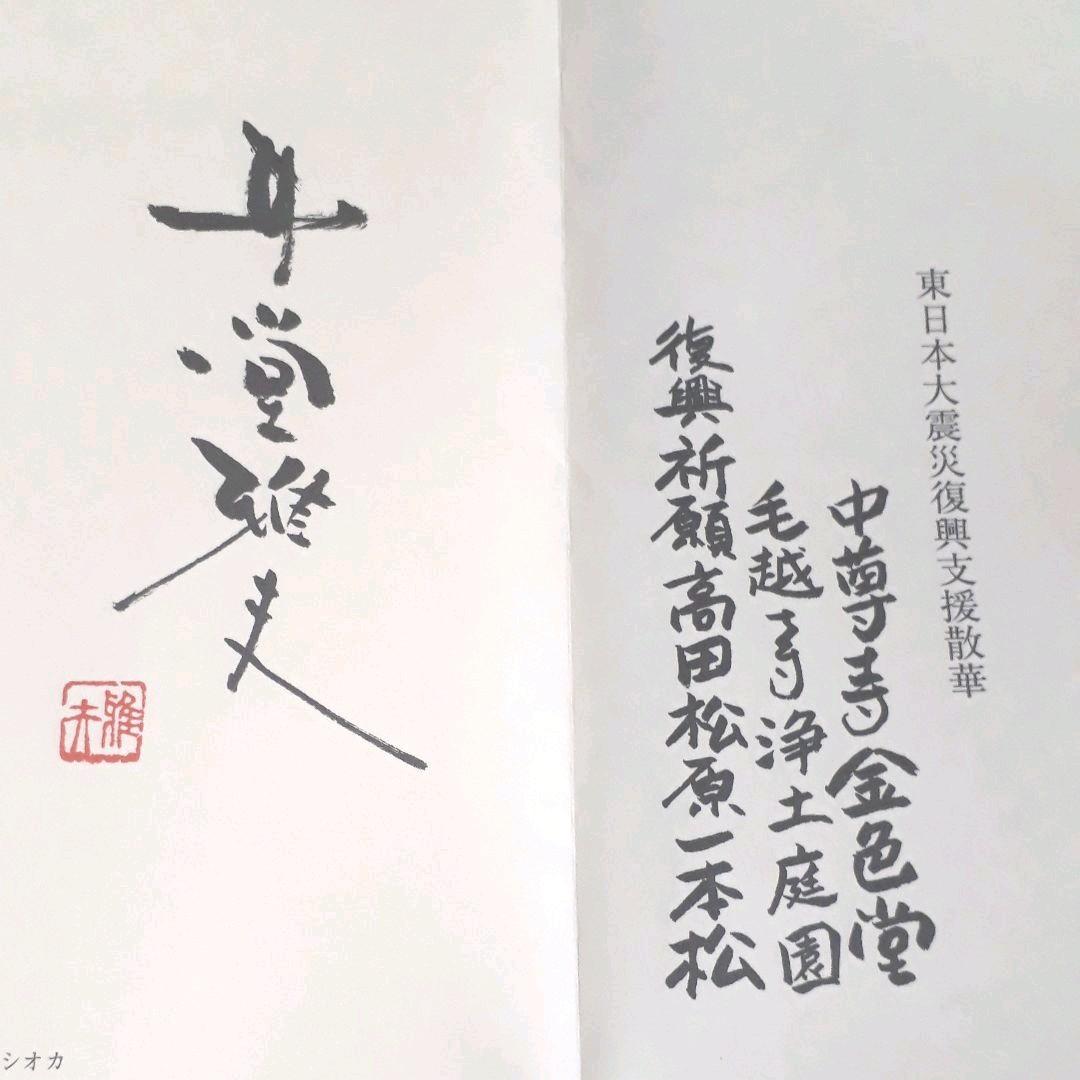 東日本大震災復興支援散華
中尊寺金色堂
毛越寺浄土庭園
復興祈願高田松原一本松
井堂雅夫
シオカ